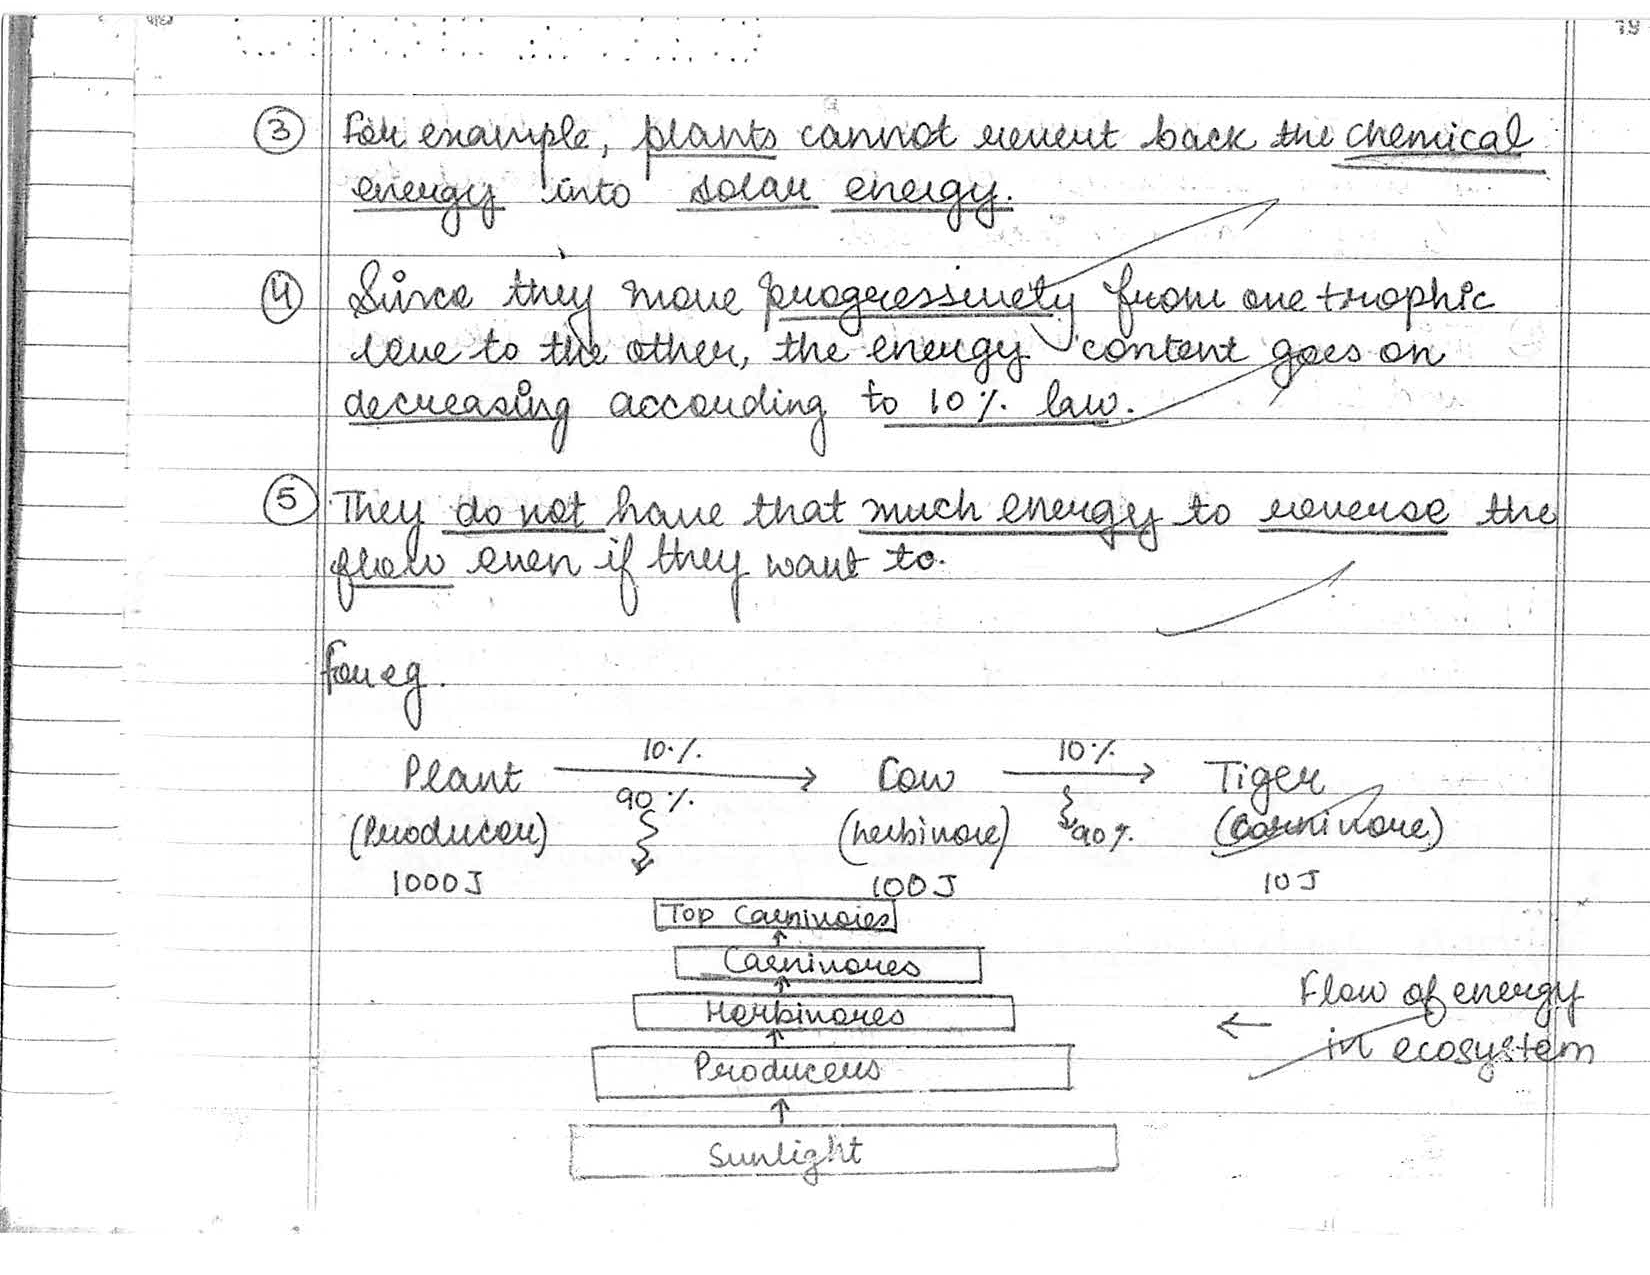 ③ For example, plants cannot revert back the chemical
energy into solar energy.
④ Since they move progressively from one trophic
leve to the other, the energy content goes on
decreasing according to 10% law.
⑤ They do not have that much energy to reverse the
flow even if they want to.
for eg.
10% 10%
Plant → Cow → Tiger
90%
(Producer) (herbivore) 90% (carnivore)
1000J 100J 10J
Top Carnivores
Carnivores
Herbivores
Producers
Sunlight
← Flow of energy
in ecosystem